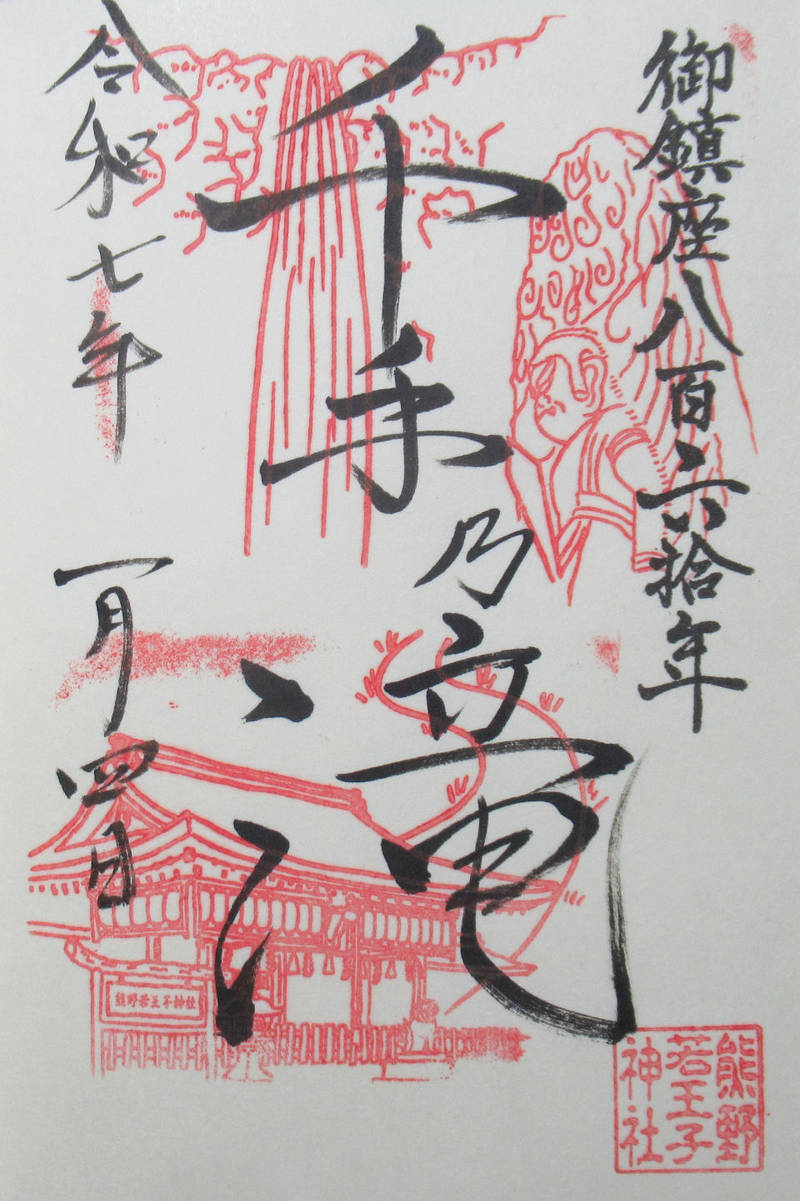 御鎮座八百六拾年
千手乃滝
令和七年
一月四日
熊野若王子神社
熊野
若王子
神社